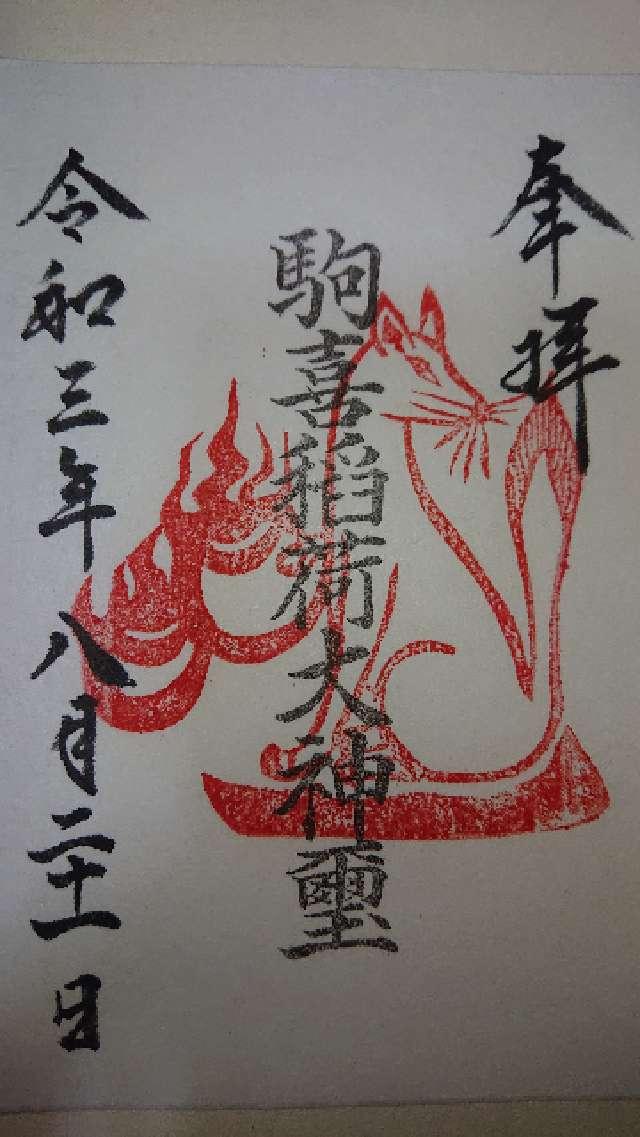 奉拝
駒喜稲荷大神璽
令和三年八月二十一日